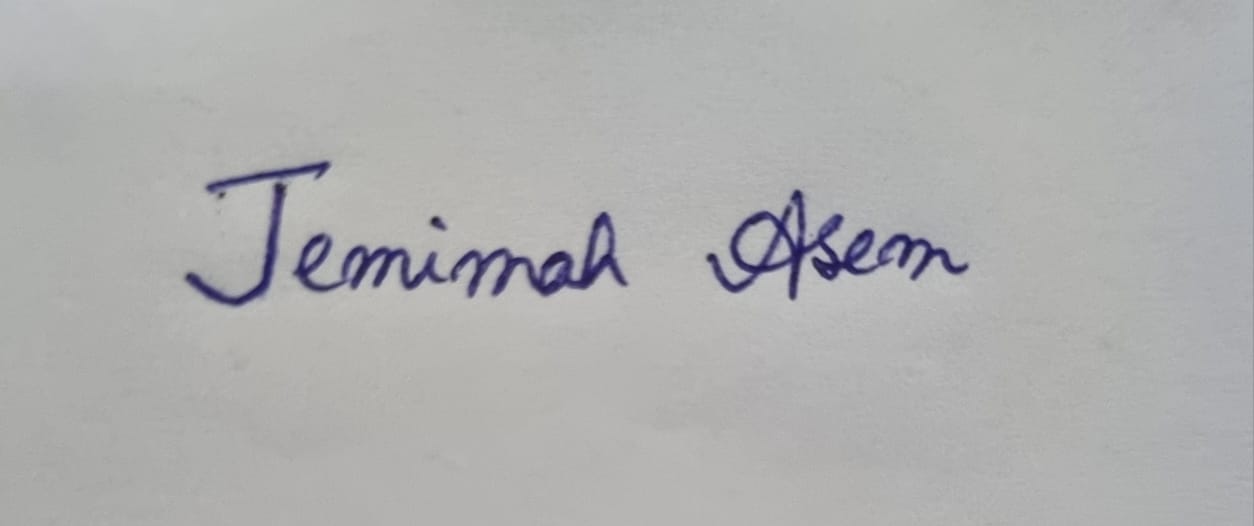 Jemimah Asem